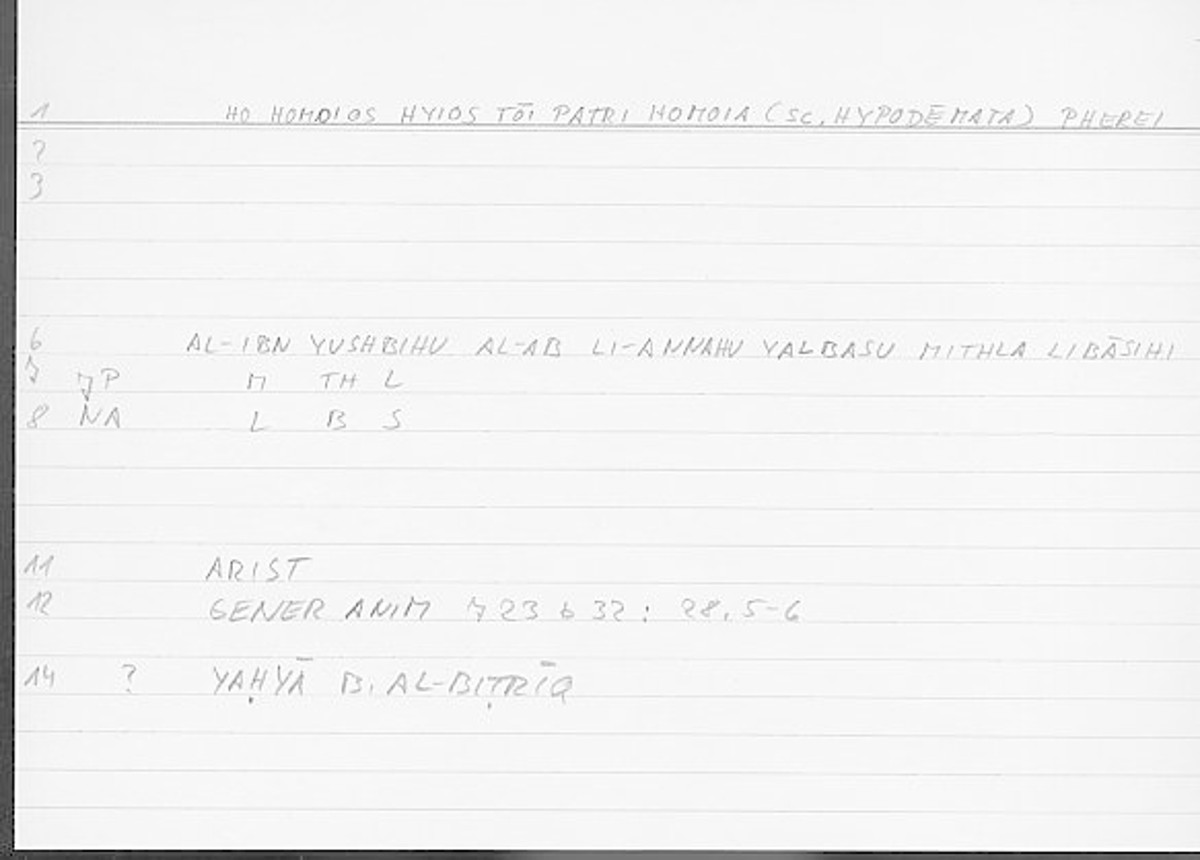 1 HO HOMOIOS HYIOS TŌI PATRI HOMOIA (SC. HYPODĒMATA) PHEREI
2
3
6 AL-IBN YUSHBIHU AL-AB LI-ANNAHU YALBASU MITHLA LIBĀSIHI
7 7P M TH L
8 NA L B S
11 ARIST
12 GENER ANIM 723 b 32: 28, 5-6
14 ? YAḤYĀ B. AL-BIṬRĪQ